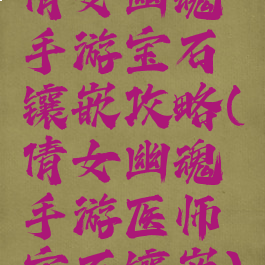 倩女幽魂
手游宝石
镶嵌攻略(
倩女幽魂
手游医师
宝石镶嵌)